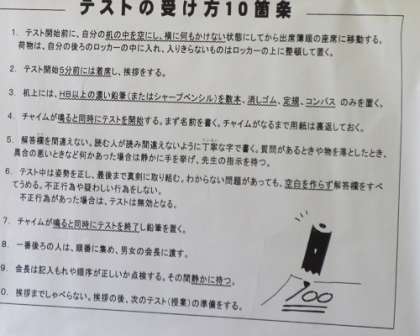 テストの受け方10箇条
1. テスト開始前に、自分の机の中を空にし、横に何もかけない状態にしてから出席簿座の座席に移動する。
荷物は、自分の後ろのロッカーの中に入れ、入りきらないものはロッカーの上に整頓して置く。
2. テスト開始5分前には着席し、挨拶をする。
3. 机上には、HB以上の濃い鉛筆(またはシャープペンシル)を数本、消しゴム、定規、コンパス のみを置く。
4. チャイムが鳴ると同時にテストを開始する。まず名前を書く。チャイムがなるまで用紙は裏返しておく。
5. 解答欄を間違えない。読む人が読み間違えないように丁寧な字で書く。質問があるときや物を落としたとき、
具合の悪いときなど何かあった場合は静かに手を挙げ、先生の指示を待つ。
6. テスト中は姿勢を正し、最後まで真剣に取り組む。わからない問題があっても、空白を作らず解答欄をすべ
てうめる。不正行為や疑わしい行為をしない。
不正行為があった場合は、テストは無効となる。
7. チャイムが鳴ると同時にテストを終了し鉛筆を置く。
8. 一番後ろの人は、順番に集め、男女の会長に渡す。
9. 会長は記入もれや順序が正しいか点検する。その間静かに待つ。
0. 挨拶までしゃべらない。挨拶の後、次のテスト(授業)の準備をする。
100